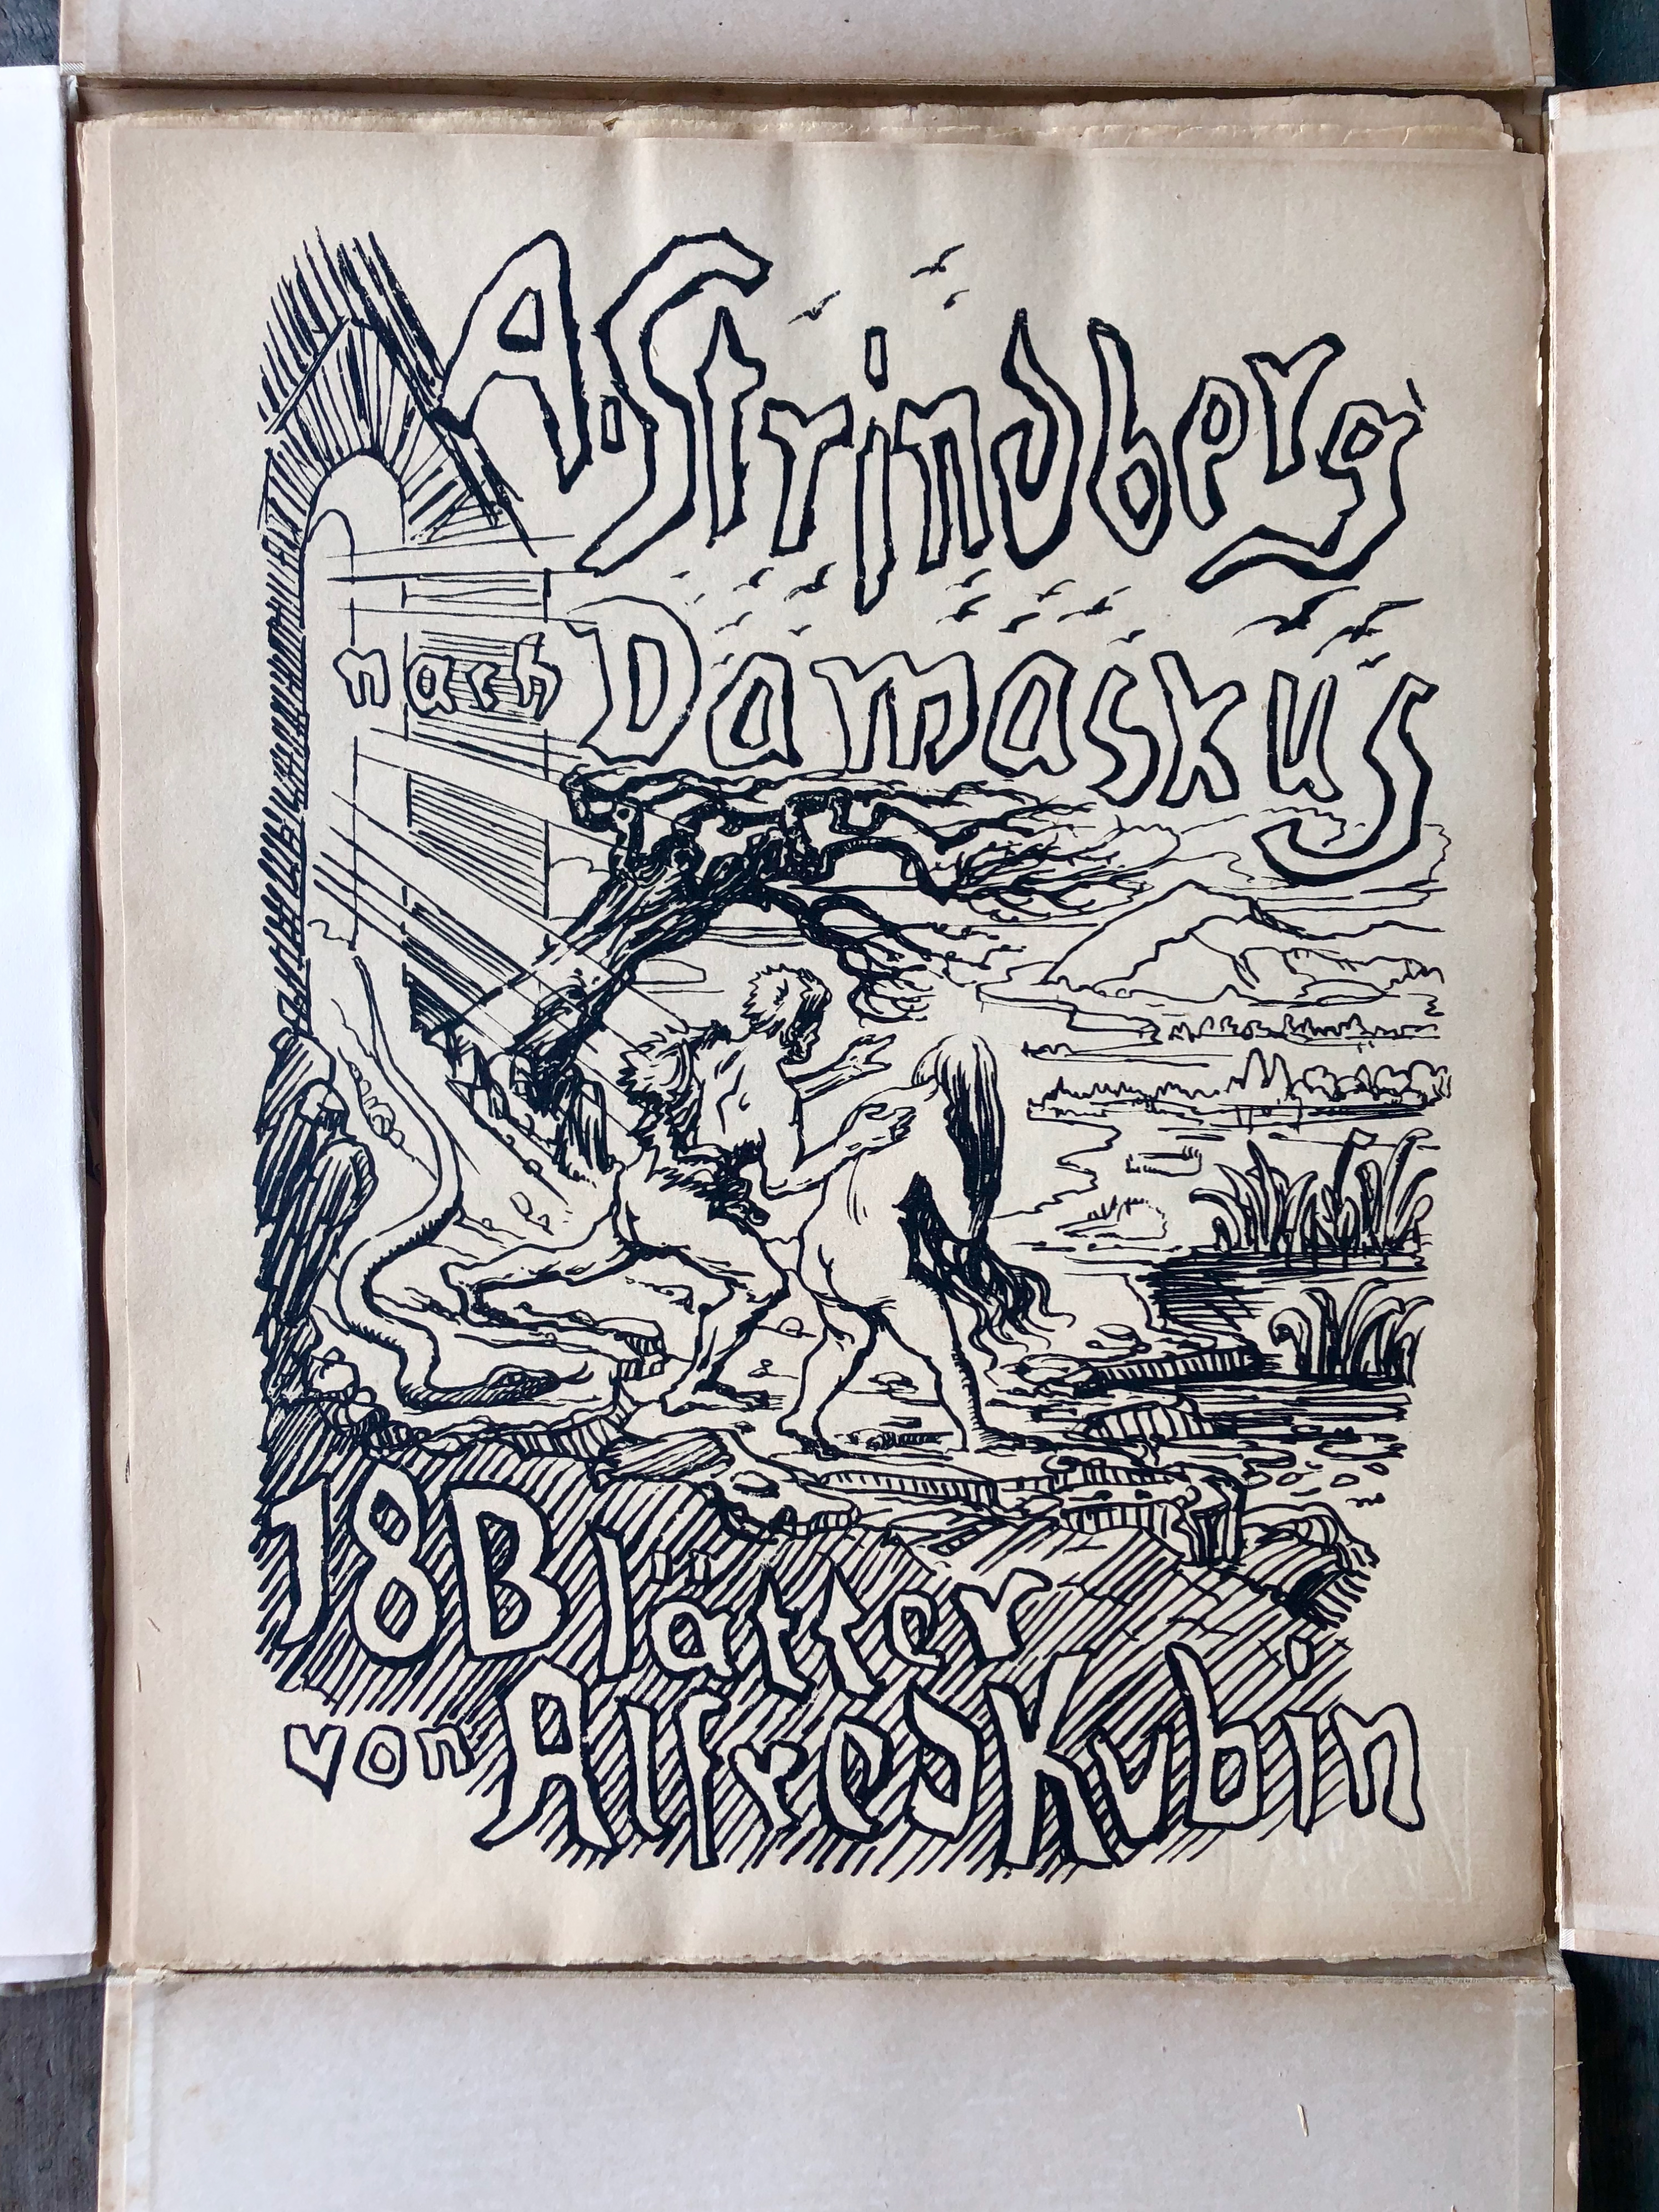 A. Strindberg
nach Damaskus
18 Blätter
von Alfred Kubin